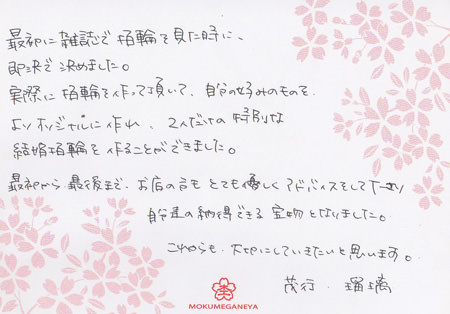 最初に雑誌で指輪を見た時に、
即決で決めました。
実際に指輪を作って頂いて、自分の好みのもので、
よりオリジナルに作れ、2人だけの特別な
結婚指輪を作ることができました。
最初から最後まで、お店の方もとても優しくアドバイスをして下さり
自分達の納得できる宝物となりました。
これからも、大切にしていきたいと思います。
茂行・瑠璃
MOKUMEGANEYA